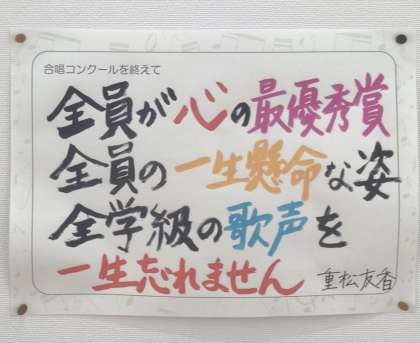 合唱コンクールを終えて
全員が心の最優秀賞
全員の一生懸命な姿
全学級の歌声を
一生忘れません
重松友香